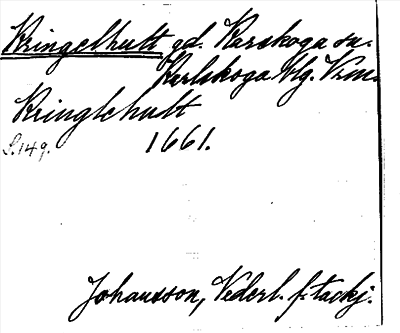 Kringelhult gd. Karskoga sn.
Karlskoga blg. Vrm.
Kringlehult
S. 149.
1661.
Johansson, Vederl. f. tackj.